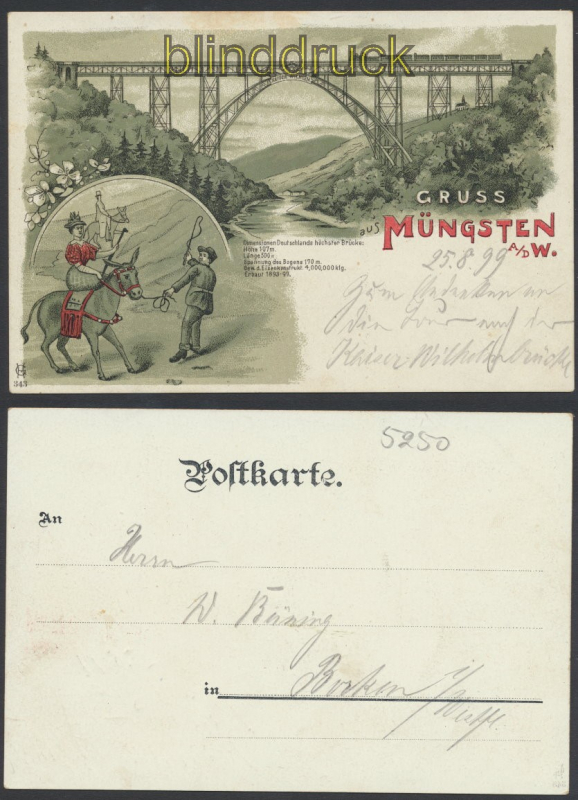 blinddruck
GRUSS
aus MÜNGSTEN
A/D W.
Dimensionen Deutschlands höchster Brücke:
Höhe 107 m.
Länge 500 m
Spannung des Bogens 170 m.
Gew. d. Eisenconstrukt. 4,000,000 klg.
Erbaut 1893-97.
25.8.99
Zum Gedenken an
die Tour auf der
Kaiser Wilhelm brücke
343
5250
Postkarte.
An
Herrn
W. Büning
in Borken i/
Westf.